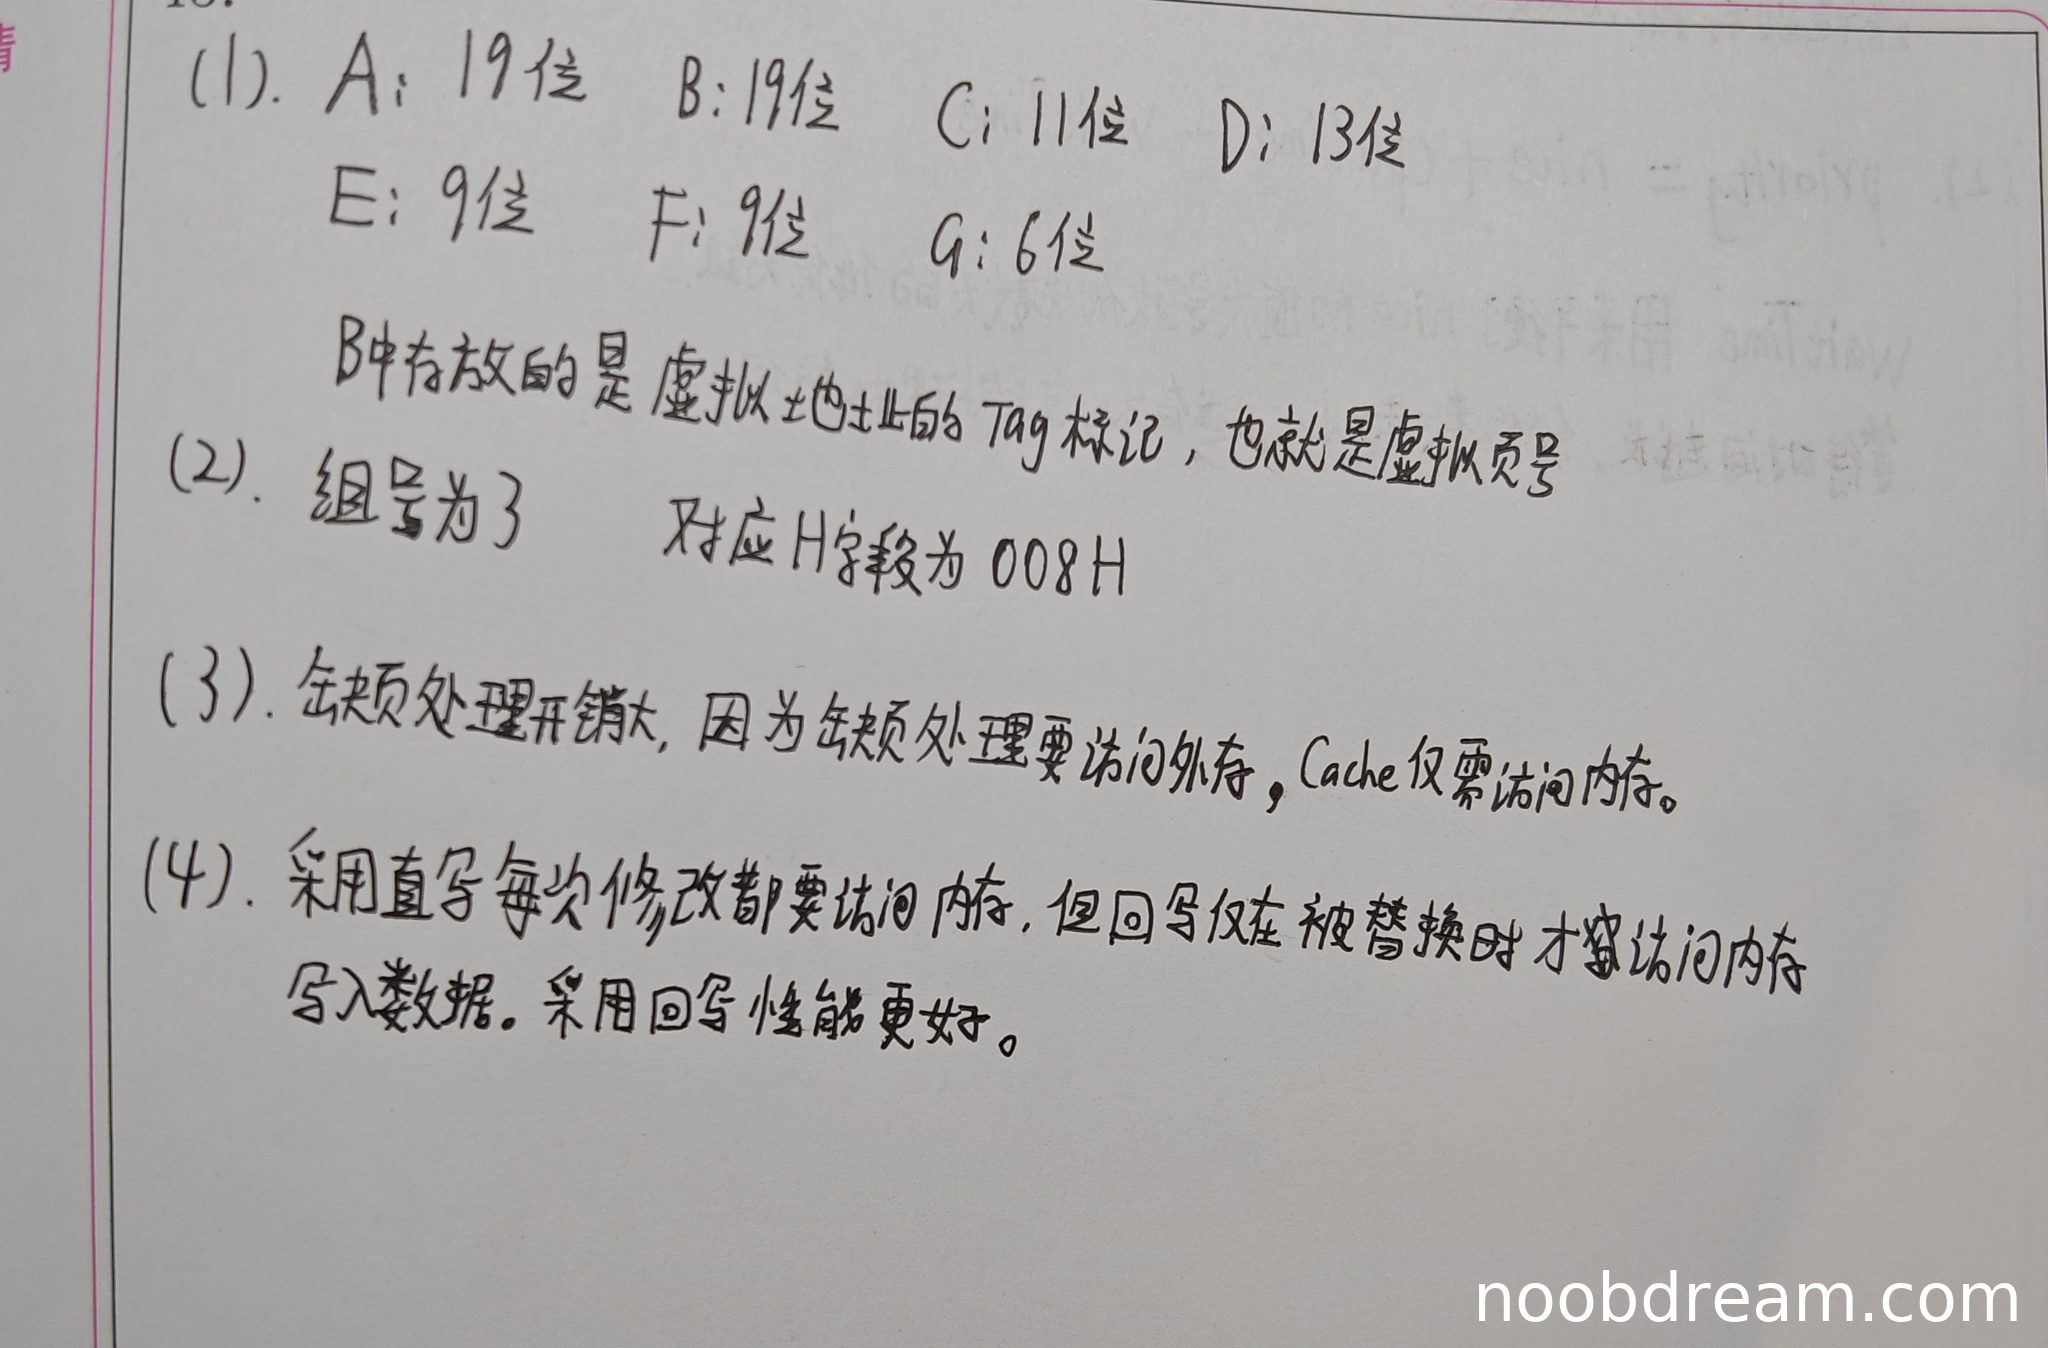 (1). A: 19位 B: 19位 C: 11位 D: 13位
E: 9位 F: 9位 G: 6位
B中存放的是虚拟地址的Tag标记，也就是虚拟页号
(2). 组号为3 对应H字段为 008H
(3). 缺页处理开销大，因为缺页处理要访问外存，Cache仅需访问内存。
(4). 采用直写每次修改都要访问内存，但回写仅在被替换时才需访问内存
写入数据。采用回写性能更好。
noobdream.com